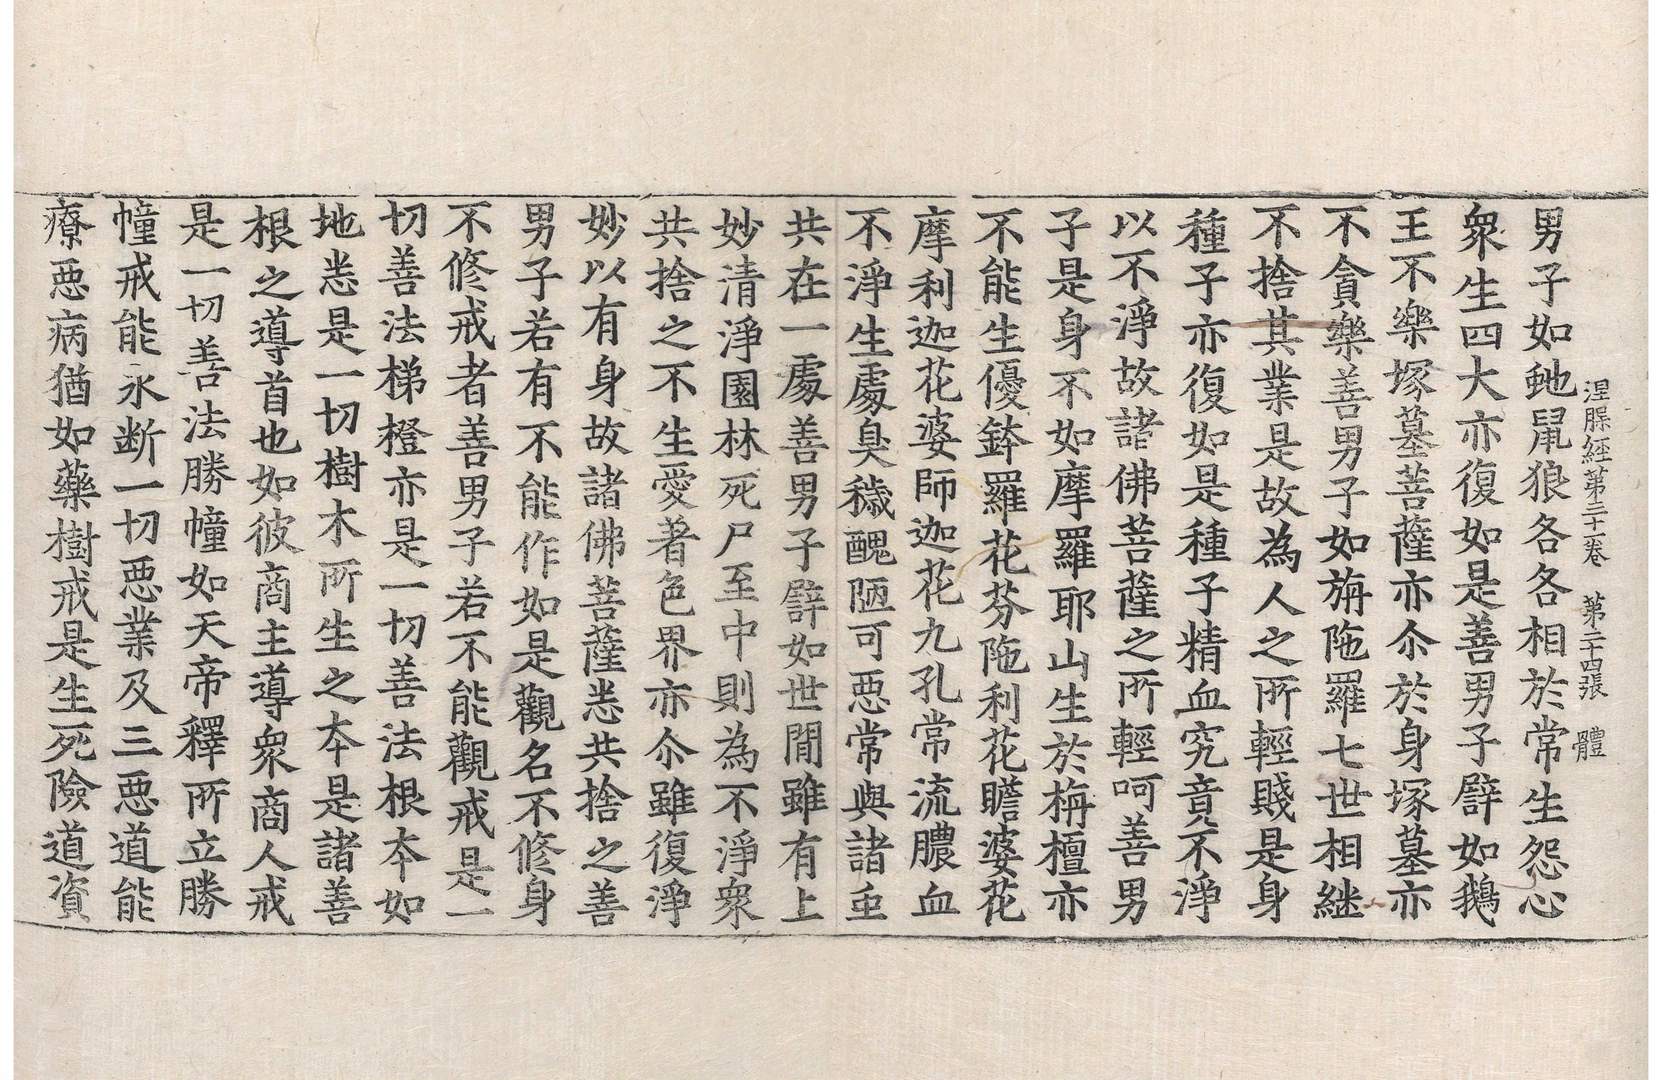 涅槃經第三十一卷　第二十四張　體
男子如虵鼠狼各各相於常生怨心
衆生四大亦復如是善男子譬如鵝
王不樂塚墓菩薩亦尒於身塚墓亦
不貪樂善男子如旃陁羅七世相継
不捨其業是故為人之所輕賤是身
種子亦復如是種子精血究竟不淨
以不淨故諸佛菩薩之所輕呵善男
子是身不如摩羅耶山生於栴檀亦
不能生優鉢羅花芬陁利花瞻婆花
摩利迦花婆師迦花九孔常流膿血
不淨生處臭穢醜陋可惡常與諸虫
共在一處善男子譬如世閒雖有上
妙清淨園林死尸至中則為不淨衆
共捨之不生愛著色界亦尒雖復淨
妙以有身故諸佛菩薩悉共捨之善
男子若有不能作如是觀名不修身
不修戒者善男子若不能觀戒是一
切善法梯橙亦是一切善法根夲如
地悉是一切樹木所生之夲是諸善
根之導首也如彼商主導衆商人戒
是一切善法勝幢如天帝釋所立勝
幢戒能永断一切惡業及三惡道能
療惡病猶如藥樹戒是生死險道資